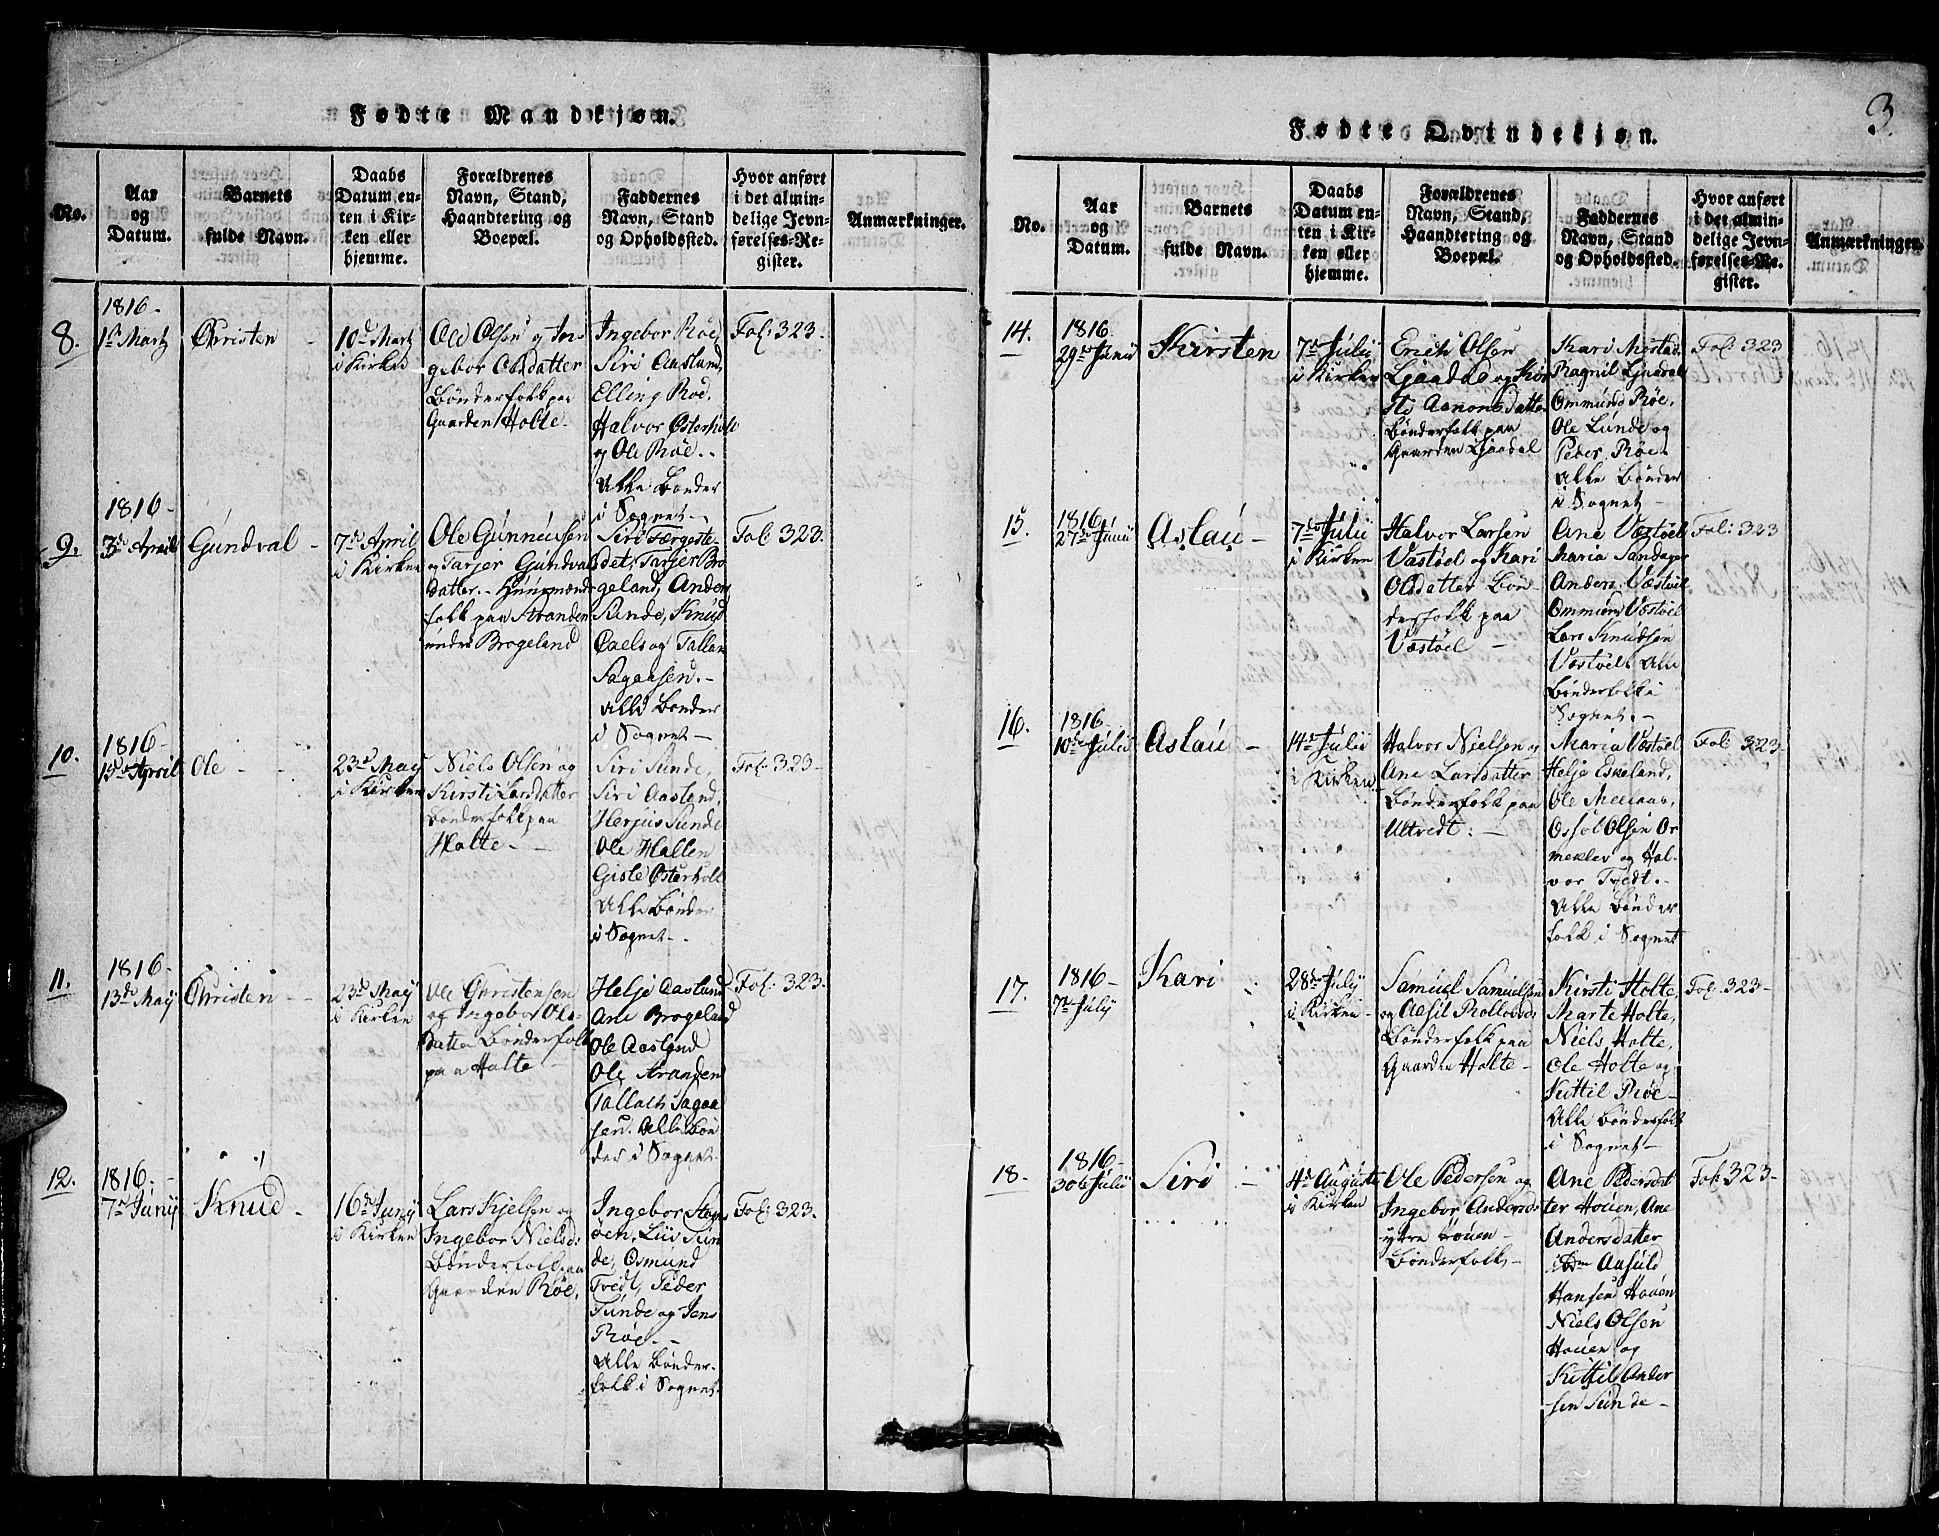 Fødte Mandkjøn.
No.
Aar
og
Datum.
Barnets
fulde Navn.
Daabs
Datum en-
ten i Kir-
ken eller
hjemme.
Forældrenes
Navn, Stand,
Haandtering og
Boepæl.
Faddernes
Navn, Stand
og Opholdssted.
Hvor anført
i det almin-
delige Jevn-
førelses-Re-
gister.
Anmærkninger.
8.
1816-
1ste Martz
Christen
10de Martz
i Kirken
Ole Olsen og In-
gebor Olsdatter
Bønderfolk paa
Gaarden Holte-
Ingebor Røe,
Siri Aaslund,
Elling Røe,
Halvor Østerholt
og Ole Røe.-
Alle Bønder
i Sognet-
Fol: 323.
9.
1816-
3de April
Gundval -
7de April
i Kirken
Ole Gunneusen
og Tarjer Gundvals
datter.- Huusmænds
folk paa Stranden
under Brogeland
Siri Færgeste-
det, Tarjer Bro
geland, Anders
Sunde, Knud
og Tallau
Sagaasen.-
Alle Bønder
i Sognet-
Fol: 323.
10.
1816-
15de April
Ole -
23de May
i Kirken
Niels Olsen og
Kirsti Larsdatter
Bønderfolk paa
Holte-
Siri Sunde,
Siri Aaslund,
Herjus Sunde
Ole Hallen
Gisle Østerholt
Alle Bønder
i Sognet-
Fol: 323-
11.
1816-
13de May
Christen -
23de May
i Kirken
Ole Christensen
og Ingebor Ols-
datter Bønderfolk
paa Holte-
Helje Aaslund
Ane Brogeland
Ole Aaslund
Ole Stranden
Tallach Sagaa
sen. Alle Bøn
der i Sognet-
Fol: 323.
12.
1816.-
7de Juny
Knud -
16de Juny
i Kirken
Lars Kjelsen og
Ingebor Nielsd:
Bønderfolk paa
Gaarden Røe.
Ingebor
øen, Liv Sun
de, Osmund
Tvedt, Peder
Sunde og Jens
Røe.-
Alle Bønder-
folk i Sognet-
Fol: 323.
3.
Fødte Qvindekjøn.
No.
Aar
og
Datum.
Barnets
fulde Navn.
Daabs
Datum en-
ten i Kir-
ken eller
hjemme.
Forældrenes
Navn, Stand,
Haandtering og
Boepæl.
Faddernes
Navn, Stand
og Opholdssted.
Hvor anført
i det almin-
delige Jevn-
førelses-Re-
gister.
Anmærkninger.
14.
1816.
29de Junii
Kirsten
7de Julii
i Kirken
Erich Olsen
Ljaadal og Kir
sti Aanonsdatter
Bønderfolk paa
Gaarden Ljaadal
Kari Mestad
Ragnil Ljaadal
Ommund Røe,
Ole Lunde og
Peder Røe
Alle Bønder
i Sognet-
Fol: 323
15.
1816-
27de Junii
Aslau -
7de Julii
i Kirken
Halvor Larsen
Væstøel og Kari
Olsdatter Bøn-
derfolk paa
Væstøel -
Ane Væstøel
Maria Sandager
Anders Væstøel
Ommund Væstøel
Lars Knudsen
Væstøel. Alle
Bønderfolk i
Sognet.-
Fol: 323
16.
1816-
10de Julii
Aslau -
14de Julii
i Kirken
Halvor Nielsen og
Ane Larsdatter
Bønderfolk paa
Ultvedt: -
Maria Væstøel
Helje Eskeland,
Ole Meelaas,
Ossol Olsen Or
meklev og Hal-
vor Tvedt.-
Alle Bønder
folk i Sognet
Fol: 323.
17.
1816-
7de July
Kari
28de July
i Kirken-
Samuel Samuelsen
og Aasil Rollovsd:
Bønderfolk paa
Gaarden Holte-
Kirsti Holte,
Marte Holte,
Niels Holte,
Ole Holte og
Kittil Røe-
Alle Bønderfolk
i Sognet-
Fol: 323-
18.
1816-
30te Julii
Siri -
4de Auguste
i Kirken
Ole Pedersen og
Ingebor Andersd:
ytre Houen-
Bønderfolk-
Ane Pedersdat
ter Houen, Ane
Andersdatter
Aasuld
Hansen Houen
Niels Olsen
Houen og
Kittil Ander
sen Sunde-
Fol: 323-